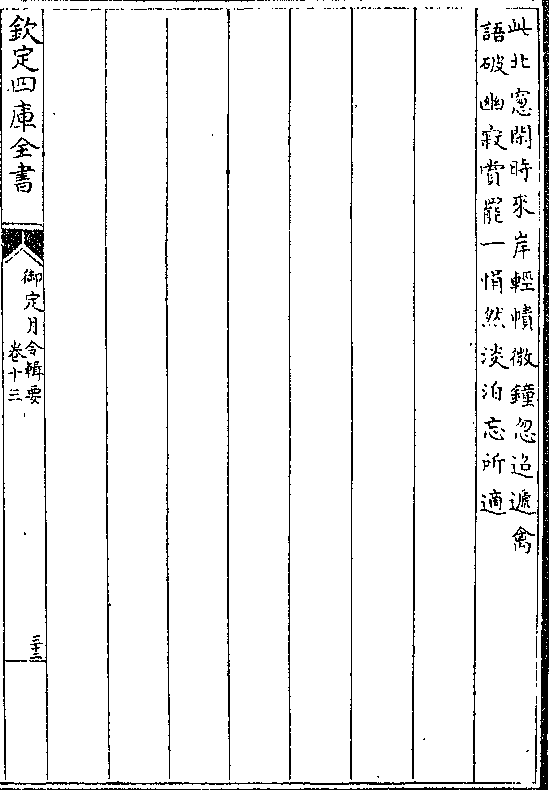 此北窻閑時來岸輕幘微鐘忽迢遞禽
語破幽寂賞罷一悄然淡泊忘所適
欽定四庫全書
御定月令輯要
卷十三
三十二